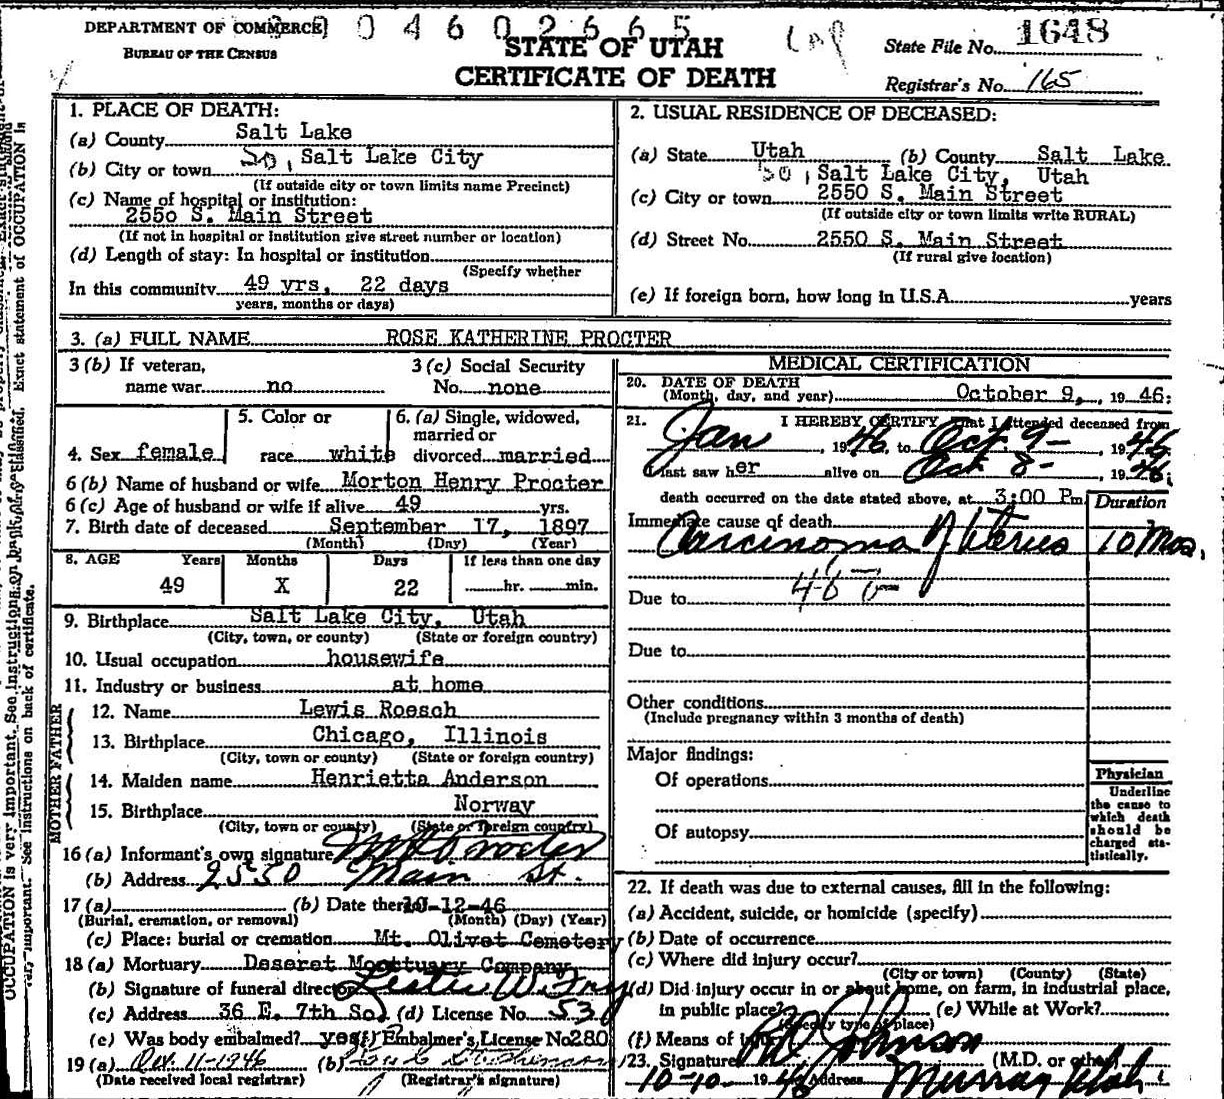 DEPARTMENT OF COMMERCE
0 4 6 0 2 6 6 5
BUREAU OF THE CENSUS
STATE OF UTAH
CERTIFICATE OF DEATH
State File No. 1648
Registrar's No. 165
1. PLACE OF DEATH:
(a) County Salt Lake
(b) City or town So, Salt Lake City
(If outside city or town limits name Precinct)
(c) Name of hospital or institution:
2550 S. Main Street
(If not in hospital or institution give street number or location)
(d) Length of stay: In hospital or institution
(Specify whether
In this community 49 yrs, 22 days
years, months or days)
2. USUAL RESIDENCE OF DECEASED:
(a) State Utah (b) County Salt Lake
So, Salt Lake City, Utah
(c) City or town 2550 S. Main Street
(If outside city or town limits write RURAL)
(d) Street No. 2550 S. Main Street
(If rural give location)
(e) If foreign born, how long in U.S.A. years
3. (a) FULL NAME ROSE KATHERINE PROCTER
3 (b) If veteran,
name war no
3 (c) Social Security
No. none
4. Sex female
5. Color or
race white
6. (a) Single, widowed,
married or
divorced married
6 (b) Name of husband or wife Morton Henry Procter
6 (c) Age of husband or wife if alive 49 yrs.
7. Birth date of deceased September 17, 1897
(Month) (Day) (Year)
8. AGE Years Months Days If less than one day
49 X 22 hr. min.
9. Birthplace Salt Lake City, Utah
(City, town, or county) (State or foreign country)
10. Usual occupation housewife
11. Industry or business at home
FATHER
12. Name Lewis Roesch
13. Birthplace Chicago, Illinois
(City, town or county) (State or foreign country)
MOTHER
14. Maiden name Henrietta Anderson
15. Birthplace Norway
(City, town or county) (State or foreign country)
16 (a) Informant's own signature M H Procter
(b) Address 2550 Main St.
17 (a) (b) Date thereof 10-12-46
(Burial, cremation, or removal) (Month) (Day) (Year)
(c) Place: burial or cremation Mt. Olivet Cemetery
18 (a) Mortuary Deseret Mortuary Company
(b) Signature of funeral director Leslie W.
(c) Address 36 E. 7th So. (d) License No. 530
(e) Was body embalmed? yes (f) Embalmer's License No 280
19 (a) Oct. 11-1946 (b)
(Date received local registrar) (Registrar's signature)
MEDICAL CERTIFICATION
20. DATE OF DEATH
(Month, day, and year) October 9, 1946:
21. I HEREBY CERTIFY That I attended deceased from
Jan, 1946, to Oct. 9-, 1946
I last saw her alive on Oct 8-, 1946,
death occurred on the date stated above, at 3:00 Pm
Duration
Immediate cause of death
Carcinoma of Uterus 10 Mos.
48
Due to
Due to
Other conditions
(Include pregnancy within 3 months of death)
Major findings:
Of operations
Of autopsy
Physician
Underline
the cause to
which death
should be
charged sta-
tistically.
22. If death was due to external causes, fill in the following:
(a) Accident, suicide, or homicide (specify)
(b) Date of occurrence
(c) Where did injury occur?
(City or town) (County) (State)
(d) Did injury occur in or about home, on farm, in industrial place,
in public place? (e) While at Work?
(Specify type of place)
(f) Means of injury
23. Signature Johnson (M.D. or other)
10-10- 1946 Address Murray Utah
OCCUPATION is very important. See instructions on back of certificate.
Exact statement of OCCUPATION is